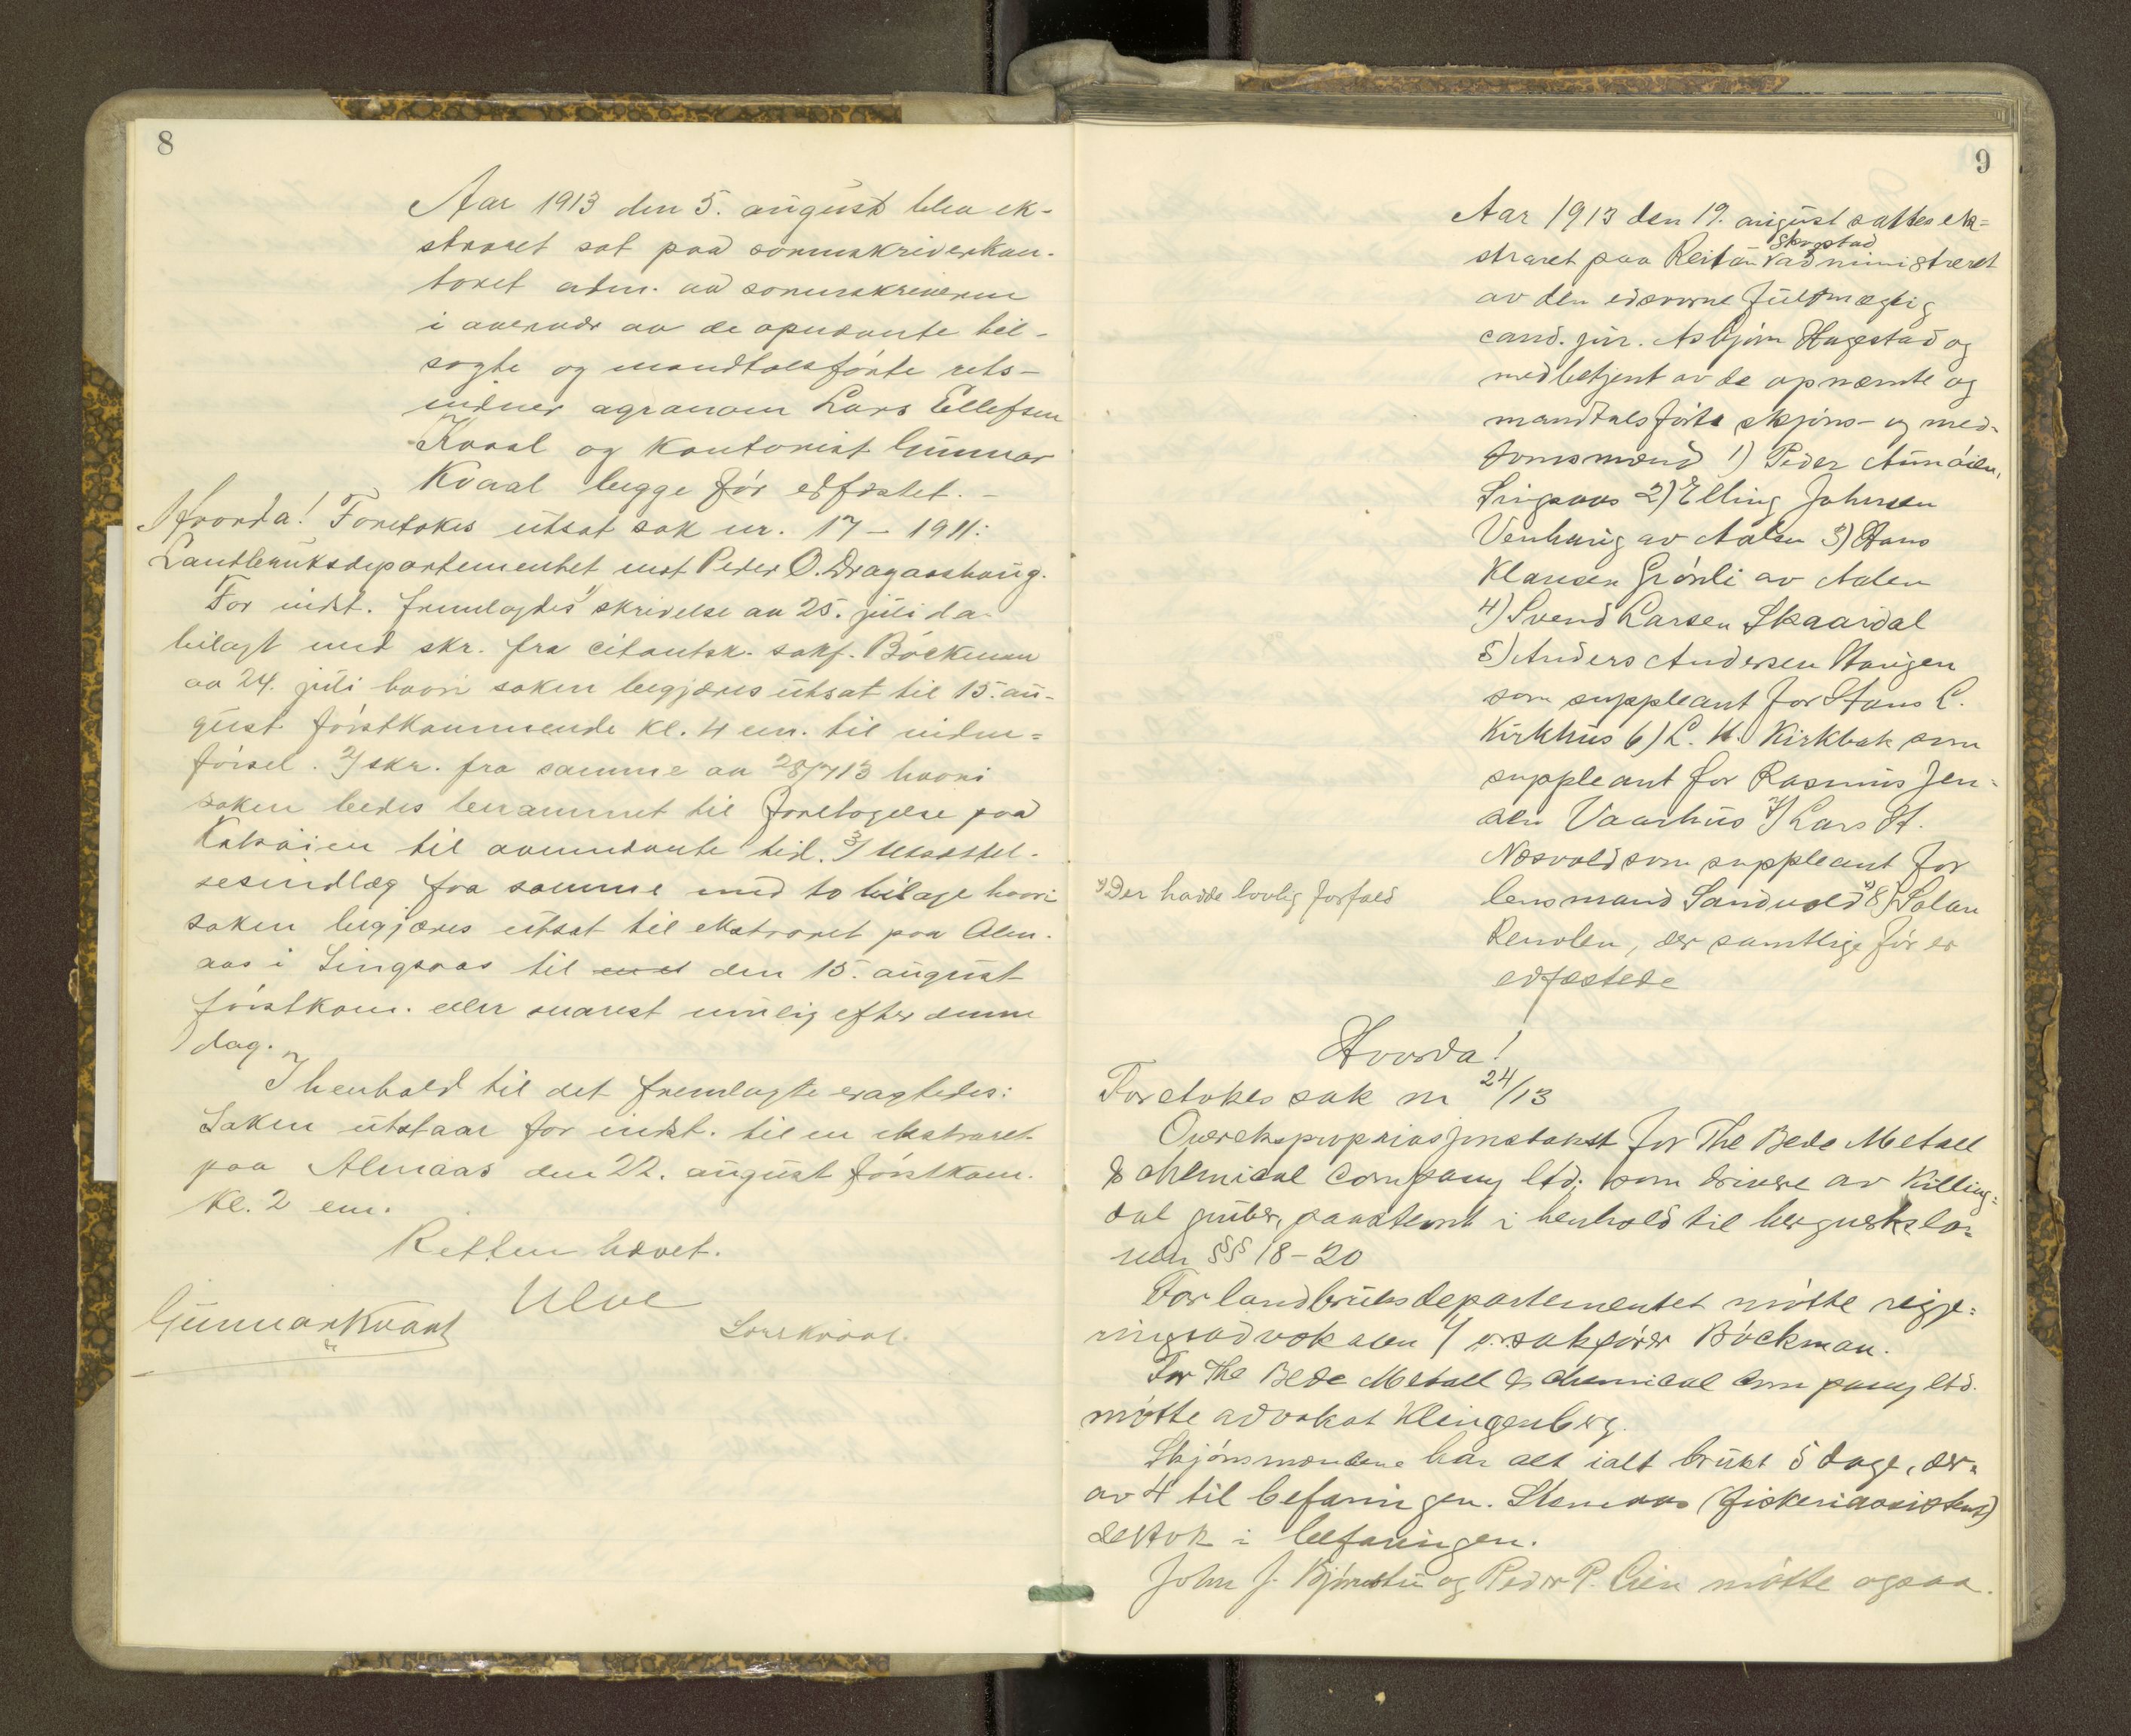 8
Aar 1913 den 5. august blev ek-
straret sat paa sorenskriverkon-
toret adm. av sorenskriveren
i overvær av de opnævnte til-
sagte og mandtalsførte rets-
vidner agronom Lars Ellefsen
Kvaal og kontorist Gunnar
Kvaal begge før edfæstet. –
Hvorda! Foretokes utsat sak nr. 17 – 1911:
Landbruksdepartementet mot Peder O. Dragaashaug.
For indst. fremlagdes 1) skrivelse av 25. juli d.a.
bilagt med skr. fra citantsk. sakf. Böckman
av 24. juli hvori saken begjæres utsat til 15. au-
gust førstkommende kl. 4 em. til vidne=
førsel. 2) skr. fra samme av 28/7 13 hvori
saken bedes berammet til foretagelse paa
til ovennævnte tid. 3) Utsættel-
sesindlæg fra samme med to bilage hvori
saken begjæres utsat til ekstraret paa Alm-
aas i Singsaas til den 15. august
førstkom. eller snarest mulig efter denne
dag.
I henhold til det fremlagte eragtedes:
Saken utstaar for indst. til en ekstraret
paa Almaas den 22. august førstkom.
kl. 2 em.
Retten hævet.
Ulve
Gunnar Kvaal
Lars Kvaal.
9
Aar 1913 den 19. august sattes ek=
Skogstad
straret paa Reitan V administreret
av den edsvorne fuldmægtig
cand. jur. Asbjørn Hagestad og
medbetjent av de opnævnte og
mandtalsførte skjøns- og med-
domsmænd 1) Peder Aunøien,
Singsaas 2) Elling Johnsen
Venhaug av Aalen 3) Hans
Klausen Grønli av Aalen
4) Svend Larsen Skaardal
5) Anders Andersen Haugen
som suppleant for Hans C.
Kirkhus 6) L. H. Kirkbak som
suppleant for Rasmus Jen=
sen Vaarhus 7) Lars H.
Næsvold som suppleant for
x) Der hadde lovlig forfald
lensmand Sandvold x) 8)
Renolen, der samtlige før er
edfæstede
Hvorda!
Foretokes sak nr 24/13
Overekspropriasjonstakst for The Bede Metall
& chemical company ltd; som drivere av Killing=
dal gruber, paastevnt i henhold til bergverkslo=
ven §§ 18 – 20
For landbruksdepartementet møtte regje=
ringsadvokaten v/ o.r.sakfører Böckman.
For The Bede Metall & chemical company ltd.
møtte advokat Klingenberg.
Skjønsmændene har alt ialt brukt 5 dage, der=
av 4 til befaringen. (fiskeriassistent)
deltok i befaringen.
John J. Bjørnstu og Peder P. Lien møtte ogsaa.